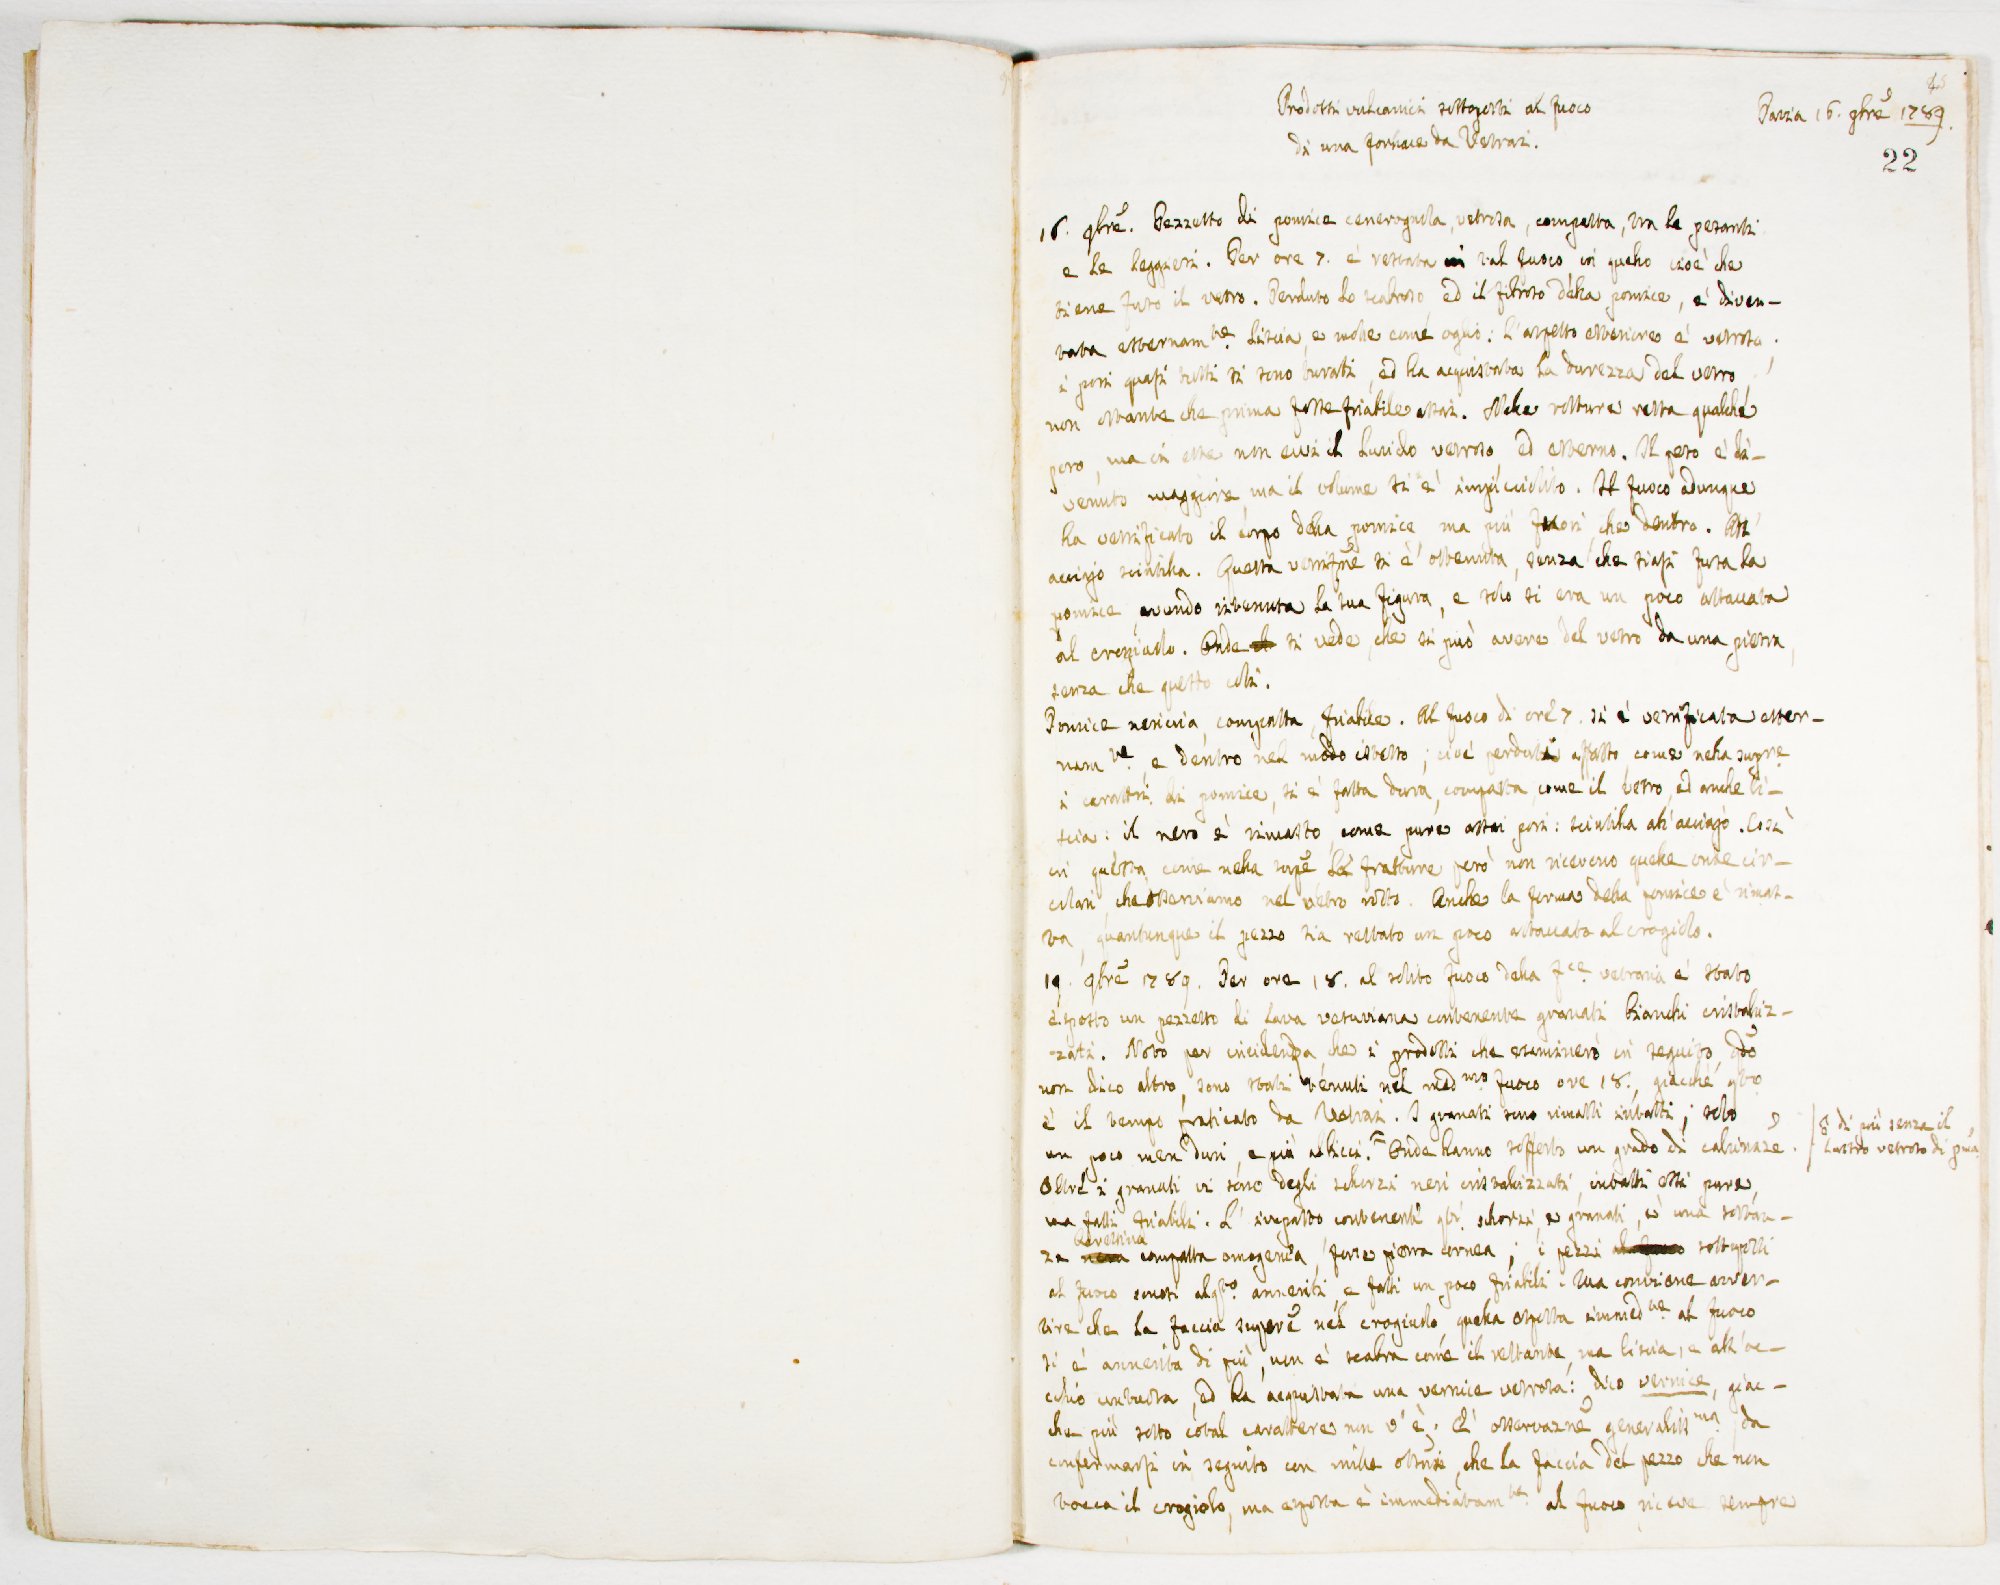 45
Prodotti vulcanici sottoposti al fuoco
di una fornace da Vetrai.
Pavia 16. 9bre 1789.
22
16. 9bre. Pezzetto di pomice cenerognola, vetrosa, compatta, tra le pesanti
e le leggieri. Per ore 7. è restata al fuoco in quello cioè che
tiene fuso il vetro. Perduto lo scabroso, ed il fibroso della pomice, è diven-
tata esternamte. liscia, e molle come oglio: l'aspetto esteriore è vetroso.
i pori quasi tutti si sono turati, ed ha acquistata la durezza del vetro,
non ostante che prima fosse friabile assai. Nelle rotture resta qualche
poro, ma in esse non evvi il lucido vetroso, ed esterno. Il peso è di-
venuto maggiore, ma il volume si è impicciolito. Il fuoco adunque
ha vetrificato il corpo della pomice, ma più fuori, che dentro. All'
acciajo scintilla. Questa vetrifne si è ottenuta, senza che siasi fusa la
pomice, avendo ritenuta la sua figura, e solo si era un poco attaccata
al crogiuolo. Onde si vede, che si può avere del vetro da una pietra,
senza che questo coli.
Pomice nericcia, compatta, friabile. Al fuoco di ore 7. si è vetrificata ester-
namte. e dentro nel modo istesso; cioè perduti affatto, come nella supre
i caratteri di pomice, si è fatta dura, compatta, come il vetro, ed anche li-
scia: il nero è rimasto, come pure assai pori: scintilla all'acciajo. Così
in questa, come nella supe le fratture però non ricevono quelle onde cir-
colari, che osserviamo nel vetro rotto. Anche la forma della pomice è rimas-
ta, quantunque il pezzo sia restato un poco attaccato al crogiolo.
19. 9bre 1789. Per ore 18. al solito fuoco della fce. vetraria è stato
esposto un pezzetto di lava vesuviana contenente granati bianchi cristalliz-
-zati. Noto per incidenza che i prodotti che esaminerò in seguito, qdo
non dico altro, sono stati tenuti nel medmo fuoco ore 18., giacchè qto
è il tempo praticato da Vetrai. I granati sono rimasti intatti; solo
un poco men duri, e più albicci. Onde hanno sofferto un grado di calcinaze.
E di più senza il
lustro vetroso di pma
Oltre i granati vi sono degli schorli neri cristallizzati, intatti essi pure,
ma fatti friabili. L'impasto contenente qti schorli, e granati, è una sostan-
za nera compatta omogenea, forse pietra cornea; i pezzi sottoposti
al fuoco sonosi alqto. anneriti, e fatti un poco friabili. Ma conviene avver-
tire che la faccia supere nel crogiuolo, quella esposta immedte al fuoco
si è annerita di più, non è scabra come il restante, ma liscia, e all'oc-
chio untuosa, ed ha acquistata una vernice vetrosa: dico vernice, giac-
che più sotto cotal carattere non v'è. È osservazne generalissma. da
confermarsi in seguito con mille ossrni, che la faccia del pezzo che non
tocca il crogiolo, ma esposta è immediatamte. al fuoco, riceve sempre